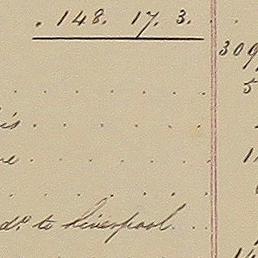 . 148. 17. 3.
309
5
is . . . . . .
e . . . . . .
1
do to Liverpool . .
14